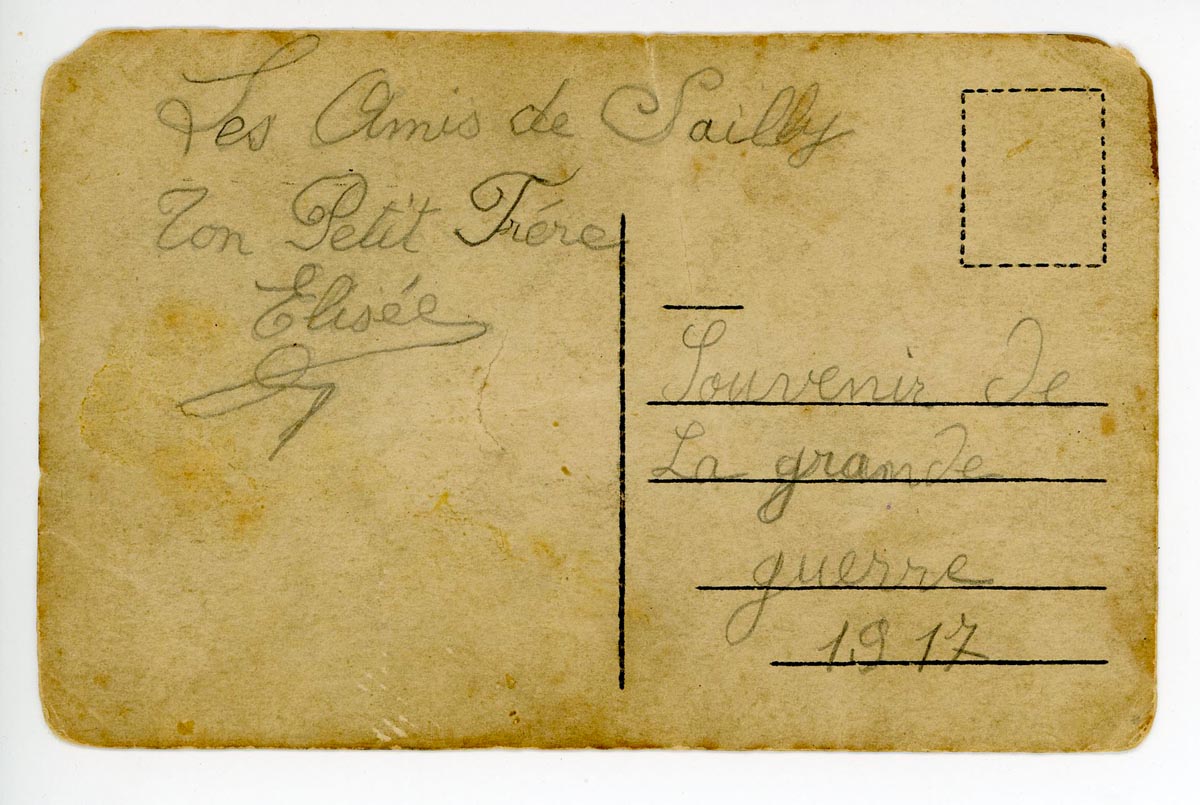 Les Amis de Sailly
Ton Petit Frére
Elisée
Souvenir de
La grande
guerre
1917